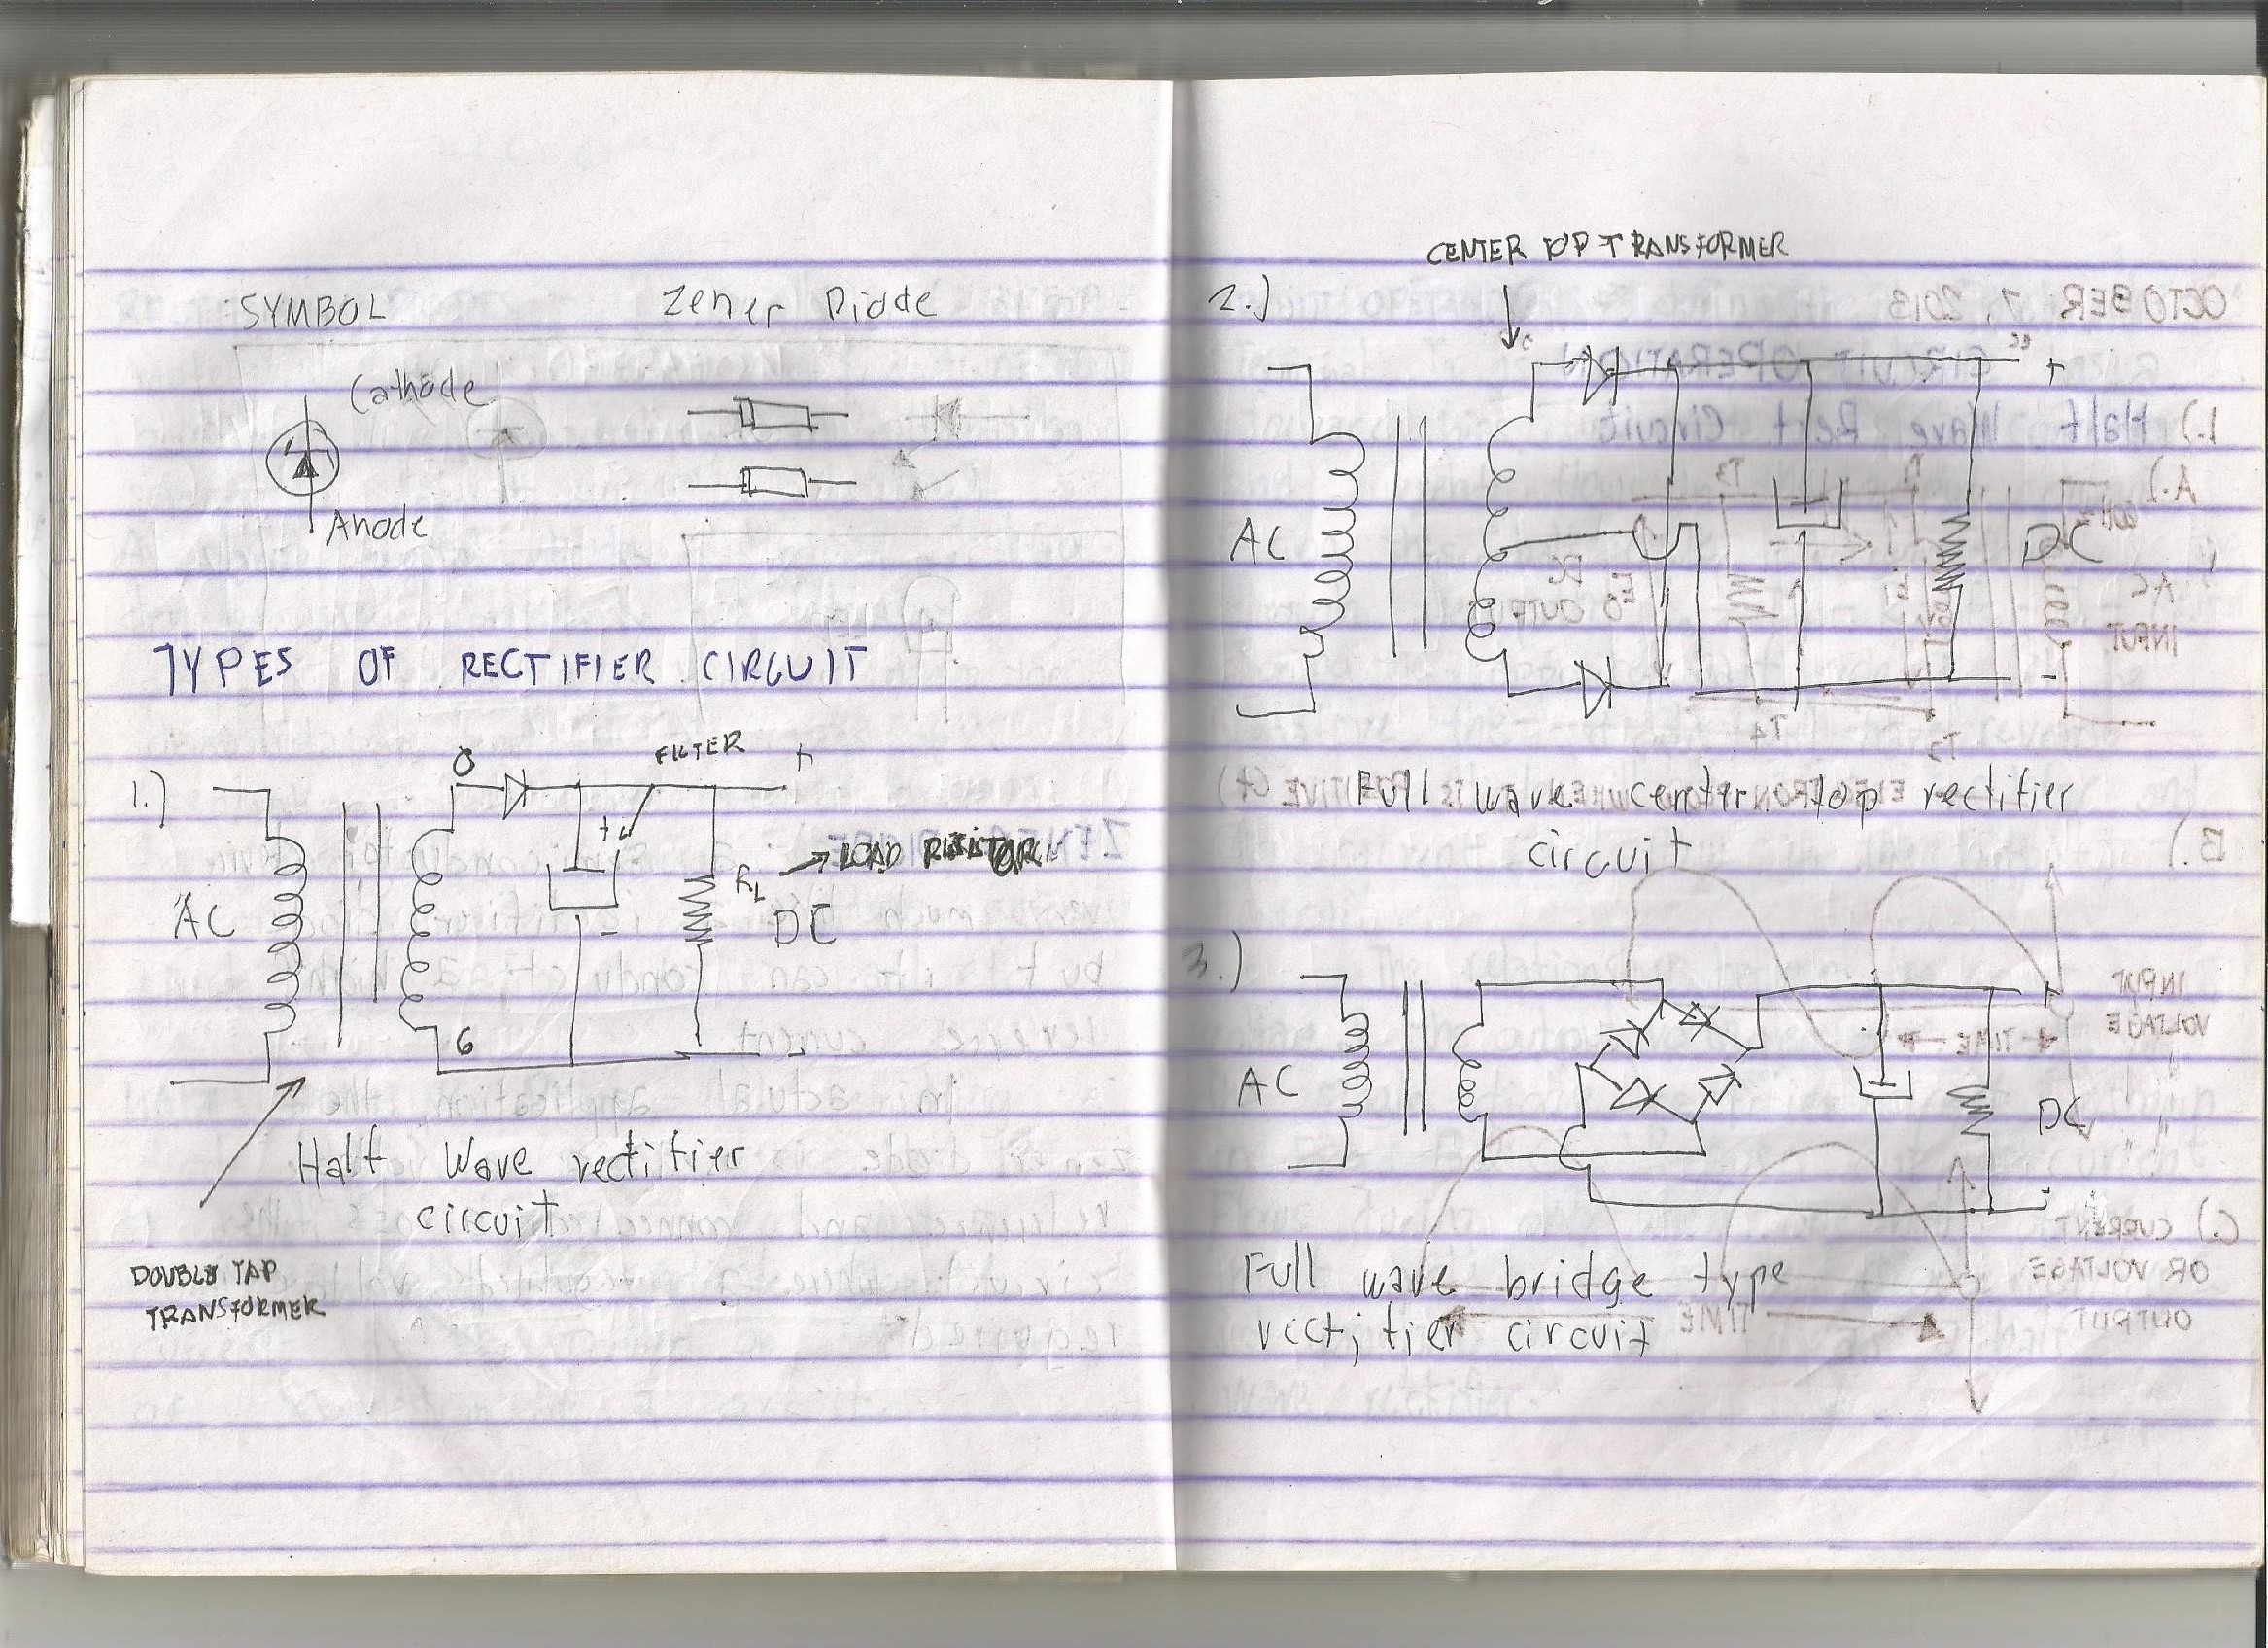 SYMBOL
Zener Diode
Cathode
Anode
TYPES OF RECTIFIER CIRCUIT
1.)
0
FILTER
+
+
RL
LOAD RESISTOR
AC
DC
-
6
-
Half Wave rectifier
circuit
DOUBLE TAP
TRANSFORMER
CENTER TOP TRANSFORMER
2.)
+
AC
DC
-
Full wave center top rectifier
circuit
3.)
+
AC
DC
-
Full wave bridge type
rectifier circuit